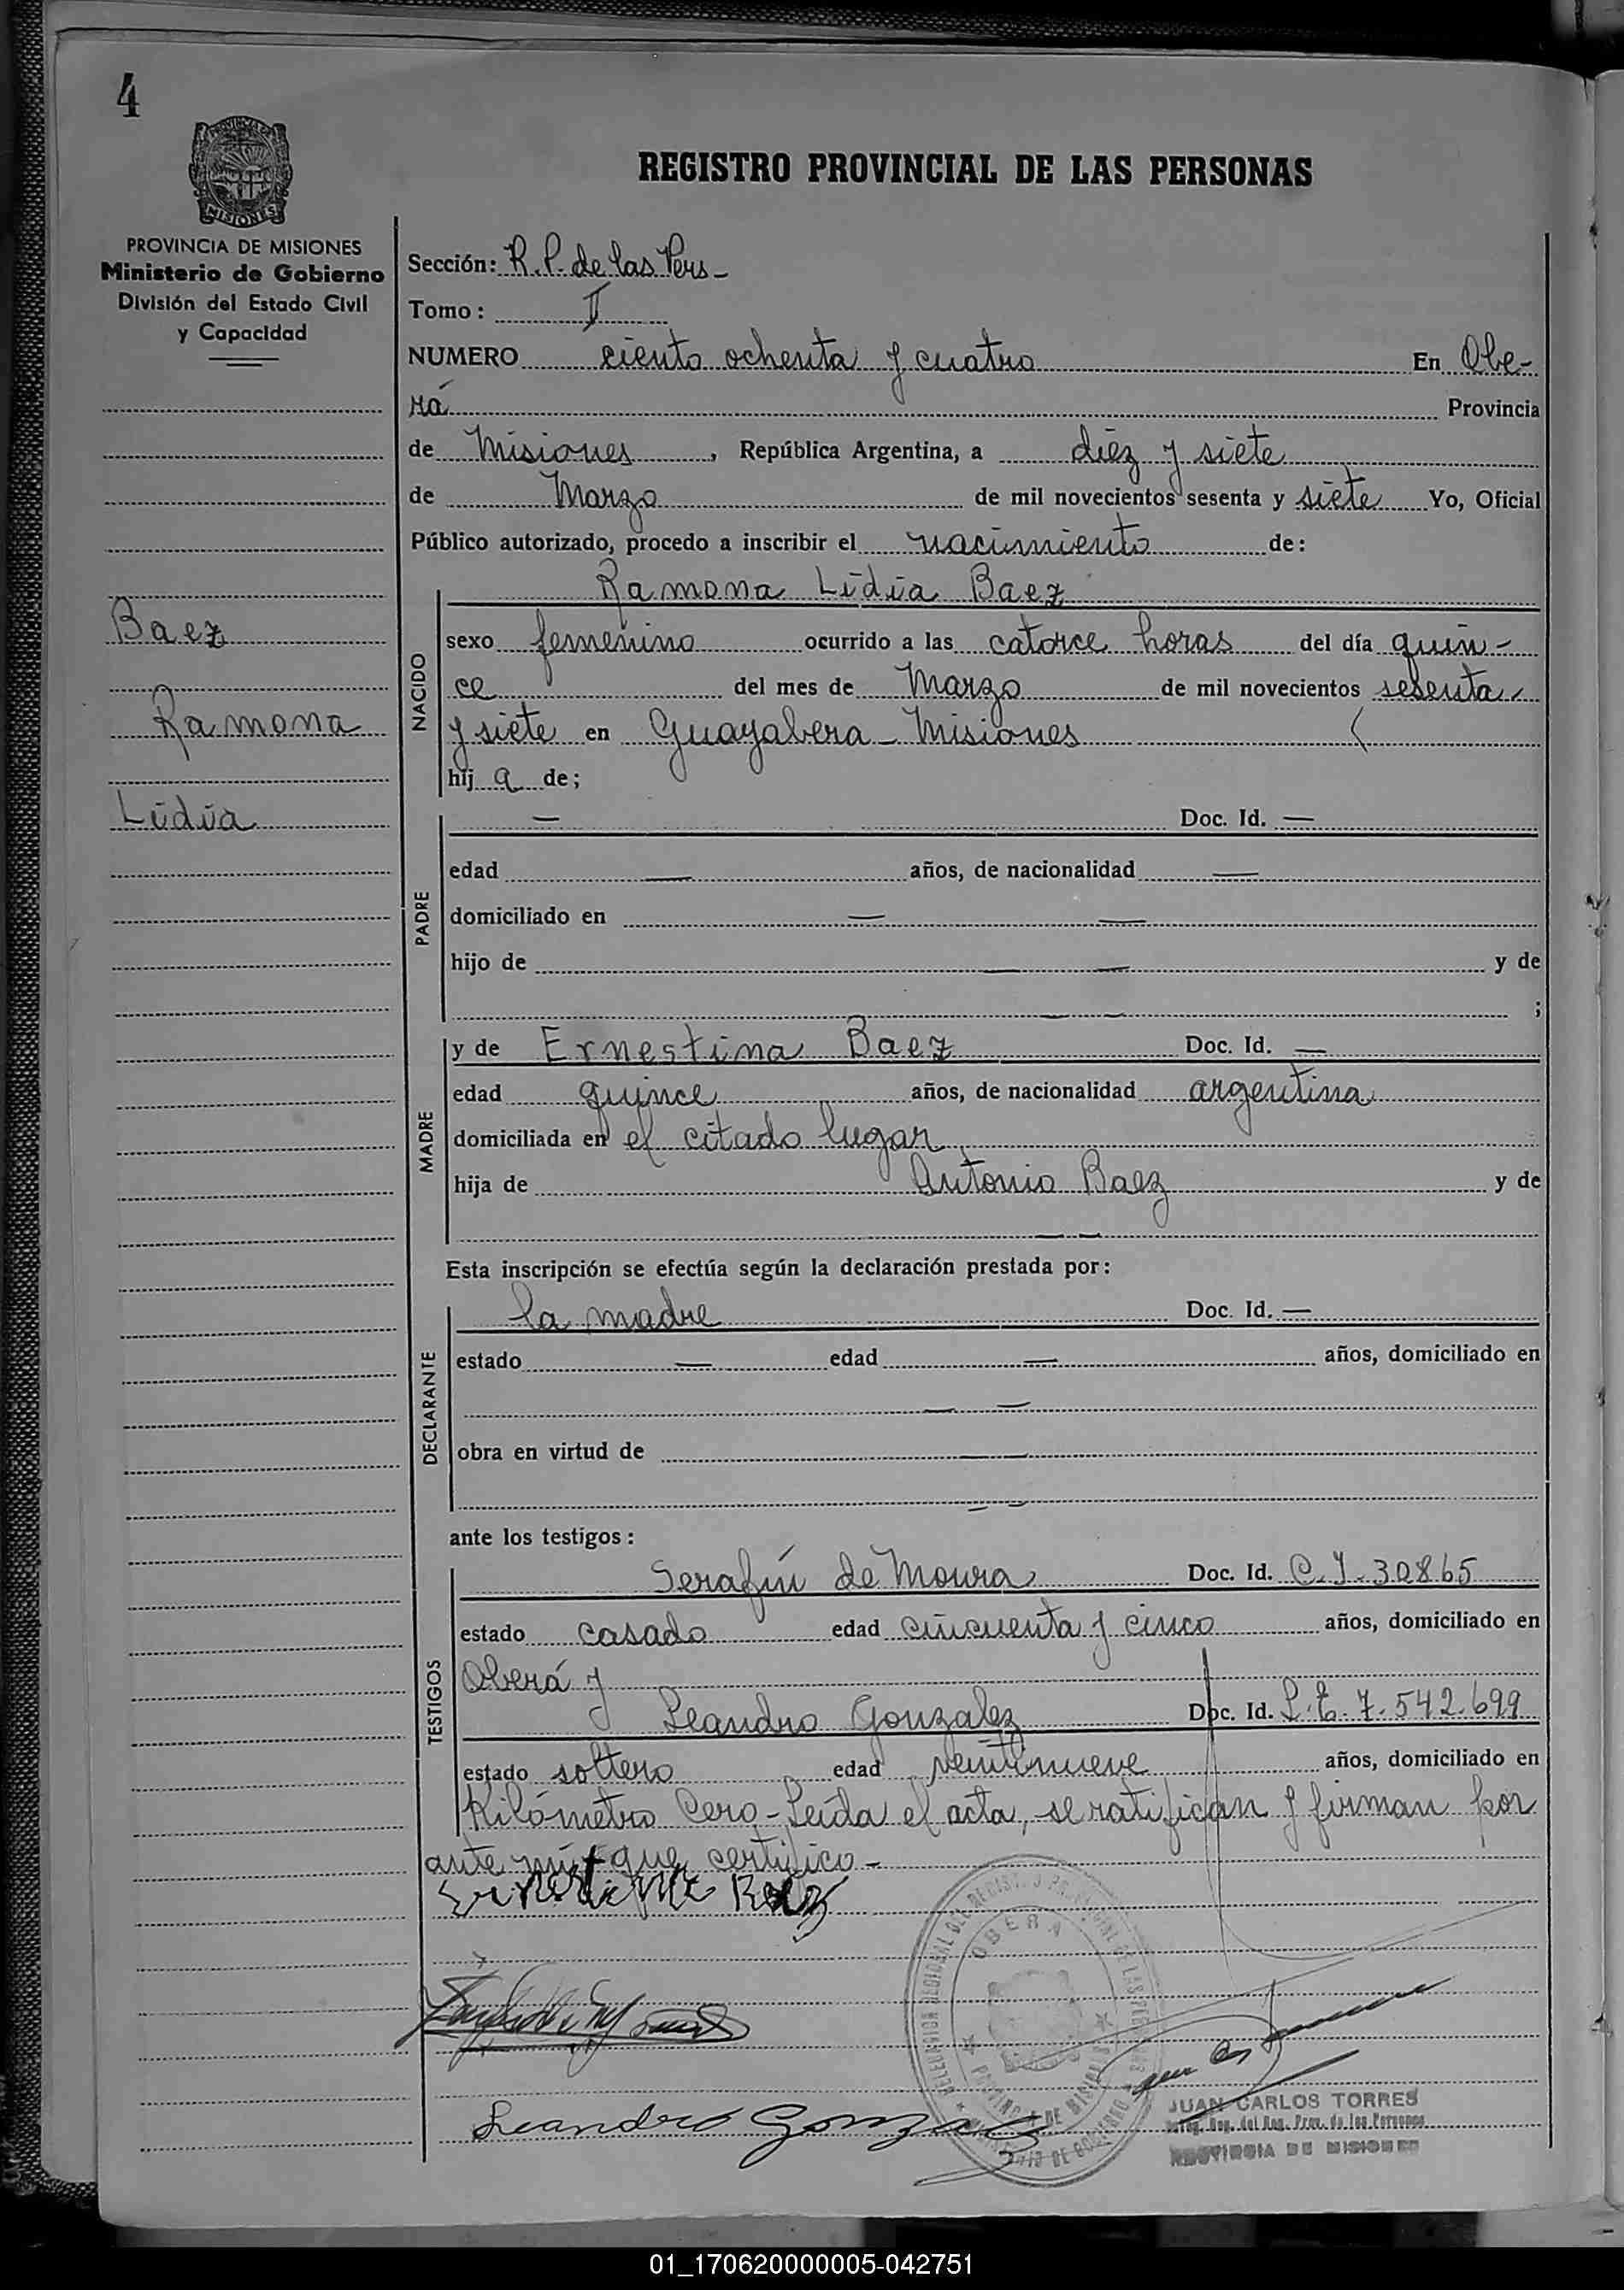 4
PROVINCIA DE MISIONES
MISIONES
REGISTRO PROVINCIAL DE LAS PERSONAS
PROVINCIA DE MISIONES
Ministerio de Gobierno
División del Estado Civil
y Capacidad
Sección: R.P. de las Pers-
Tomo: II
NUMERO ciento ochenta y cuatro En Obe-
rá Provincia
de Misiones, República Argentina, a diez y siete
de Marzo de mil novecientos sesenta y siete Yo, Oficial
Público autorizado, procedo a inscribir el nacimiento de:
Ramona Lidia Baez
Baez
Ramona
Lidia
NACIDO
sexo femenino ocurrido a las catorce horas del día quin-
ce del mes de Marzo de mil novecientos sesenta
y siete en Guayabera - Misiones
hij a de;
PADRE
— Doc. Id. —
edad — años, de nacionalidad —
domiciliado en — —
hijo de — — y de
— — ;
MADRE
y de Ernestina Baez Doc. Id. —
edad quince años, de nacionalidad argentina
domiciliada en el citado lugar
hija de Antonia Baez y de
— —
Esta inscripción se efectúa según la declaración prestada por:
DECLARANTE
la madre Doc. Id. —
estado — edad — años, domiciliado en
— —
obra en virtud de —
— —
ante los testigos:
TESTIGOS
Serafín de Moura Doc. Id. C.I. 30865
estado casado edad cincuenta y cinco años, domiciliado en
Oberá y
Leandro Gonzalez Doc. Id. L.E. 7.542.699
estado soltero edad veintinueve años, domiciliado en
Kilómetro Cero - Leída el acta, se ratifican y firman por
ante mí que certifico -
Ernestina Baez
OBERA
PROVINCIA DE MISIONES
Leandro Gonzalez
JUAN CARLOS TORRES
Reg. del Reg. Prov. de las Personas
PROVINCIA DE MISIONES
01_170620000005-042751